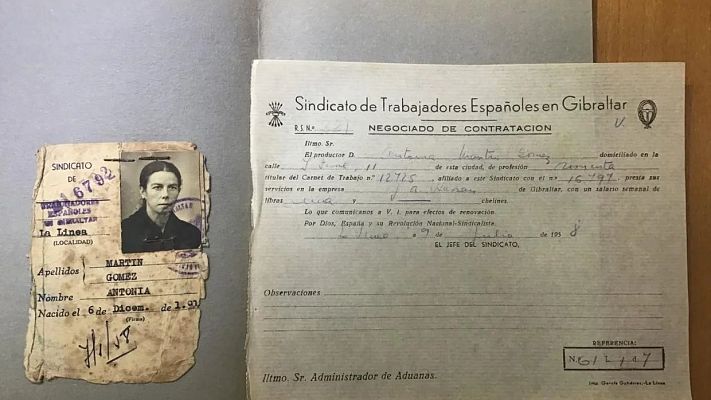 SINDICATO
DE
16792
TRABAJADORES
ESPAÑOLES
EN GIBRALTAR
La Linea
(LOCALIDAD)
Apellidos MARTIN
GOMEZ
Nombre ANTONIA
Nacido el 6 de Dicem. de 1.91
(Firma)
7/1/58
Sindicato de Trabajadores Españoles en Gibraltar
R.S.N.º
NEGOCIADO DE CONTRATACION
Iltmo. Sr.
El productor D. Antonia Martin Gomez domiciliado en la
calle 11 de esta ciudad, de profesión
titular del Carnet de Trabajo n.º 12725, afiliado a este Sindicato con el n.º 16.792, presta sus
servicios en la empresa de Gibraltar, con un salario semanal de
libras una y chelines.
Lo que comunicamos a V. I. para efectos de renovación.
Por Dios, España y su Revolución Nacional-Sindicalista.
La Linea, a 9 de Julio de 1958
EL JEFE DEL SINDICATO,
Observaciones
REFERENCIA:
N.º
Iltmo. Sr. Administrador de Aduanas.
Imp. García Gutiérrez.-La Línea